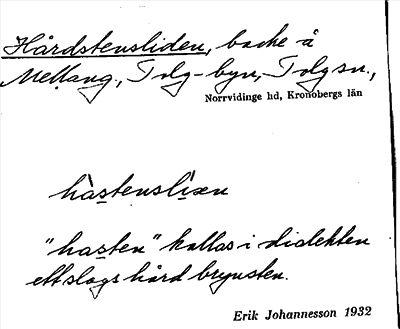 Hårdstensliden, backe å
Mellang., Tolg-byn, Tolg sn.,
Norrvidinge hd, Kronobergs län
hàstenslìxen
"hasten" kallas i dialekten
ett slags hård brynsten.
Erik Johannesson 1932